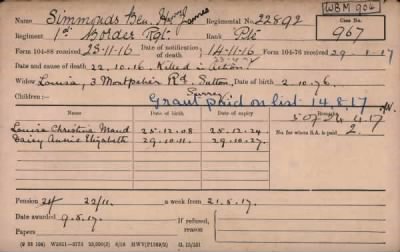 WBM 904
Name Simmonds Ben. Henry James Regimental No. 22892 Case No.
Regiment 1st Border Rgt. Rank Pte 967
Form 104-88 received 23-11-16 Date of notification of death 14-11-16 Form 104-76 received 29-1-17
Date and cause of death 22.10.16. Killed in Action
Widow Louisa, 3 Montpelier Rd Sutton, Date of birth 2.10.76.
Surrey
Children:— Grant paid on list 14.8.17
Date of birth Date of expiry
Louisa Christina Maud 25.12.08 25.12.24 No. for whom S.A. is paid
Daisy Annie Elizabeth 29.10.11 29.10.27 2.
Pension 22/11 a week from 21.5.17.
Date awarded 9.5.17. If refused, reason